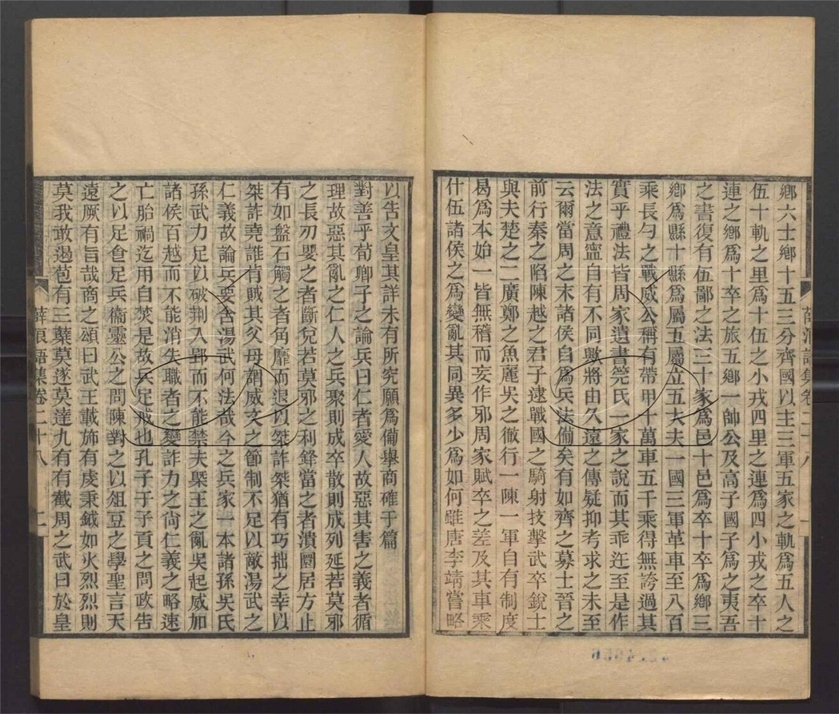 鄉六士鄉十五三分齊國以主三軍五家之軌爲五人之
伍十軌之里爲十伍之小戎四里之連爲四小戎之卒十
連之鄉爲十卒之旅五鄉一帥公及高子國子爲之夷吾
之書復有伍鄙之法三十家爲邑十邑爲卒十卒爲鄉三
鄉爲縣十縣爲屬五屬立五大夫一國三軍革車至八百
乘長勺之戰威公稱有帶甲十萬車五千乘得無誇過其
實乎禮法皆周家遺書筦氏一家之說而其乖迕至是作
法之意寍自有不同與將由久遠之傳疑抑考求之未至
云爾當周之末諸侯自爲兵法備矣有如齊之募士晉之
前行秦之陷陳越之君子逮戰國之騎射技擊武卒銳士
與夫楚之二廣鄭之魚麗吳之徹行一陳一軍自有制度
曷爲本始一皆無稽而妄作邪周家賦卒之差及其車乘
什伍諸侯之爲變亂其同異多少爲如何雖唐李靖嘗略
以告文皇其詳未有所究願爲僃舉商確于篇
對善乎荀卿子之論兵曰仁者愛人故惡其害之義者循
理故惡其亂之仁人之兵聚則成卒散則成列延若莫邪
之長刃嬰之者斷兌若莫邪之利鋒當之者潰圜居方止
有如盤石觸之者角靡而退以桀詐桀猶有巧拙之幸以
桀詐堯誰肯賊其父母謂威文之節制不足以敵湯武之
仁義故論兵要舍湯武何法哉今之兵家一本諸孫吳氏
孫武力足以破荆入郢而不能禁夫槩王之亂吳起威加
諸侯百越而不能消失職者之變詐力之尙仁義之略速
亡胎禍迄用自焚是故兵足戒也孔子于子貢之問政告
之以足食足兵衞靈公之問陳對之以俎豆之學聖言天
遠厥有旨哉商之頌曰武王載旆有虔秉鉞如火烈烈則
莫我敢遏苞有三蘖莫遂莫達九有有截周之武曰於皇
薛浪語集卷二十八 二